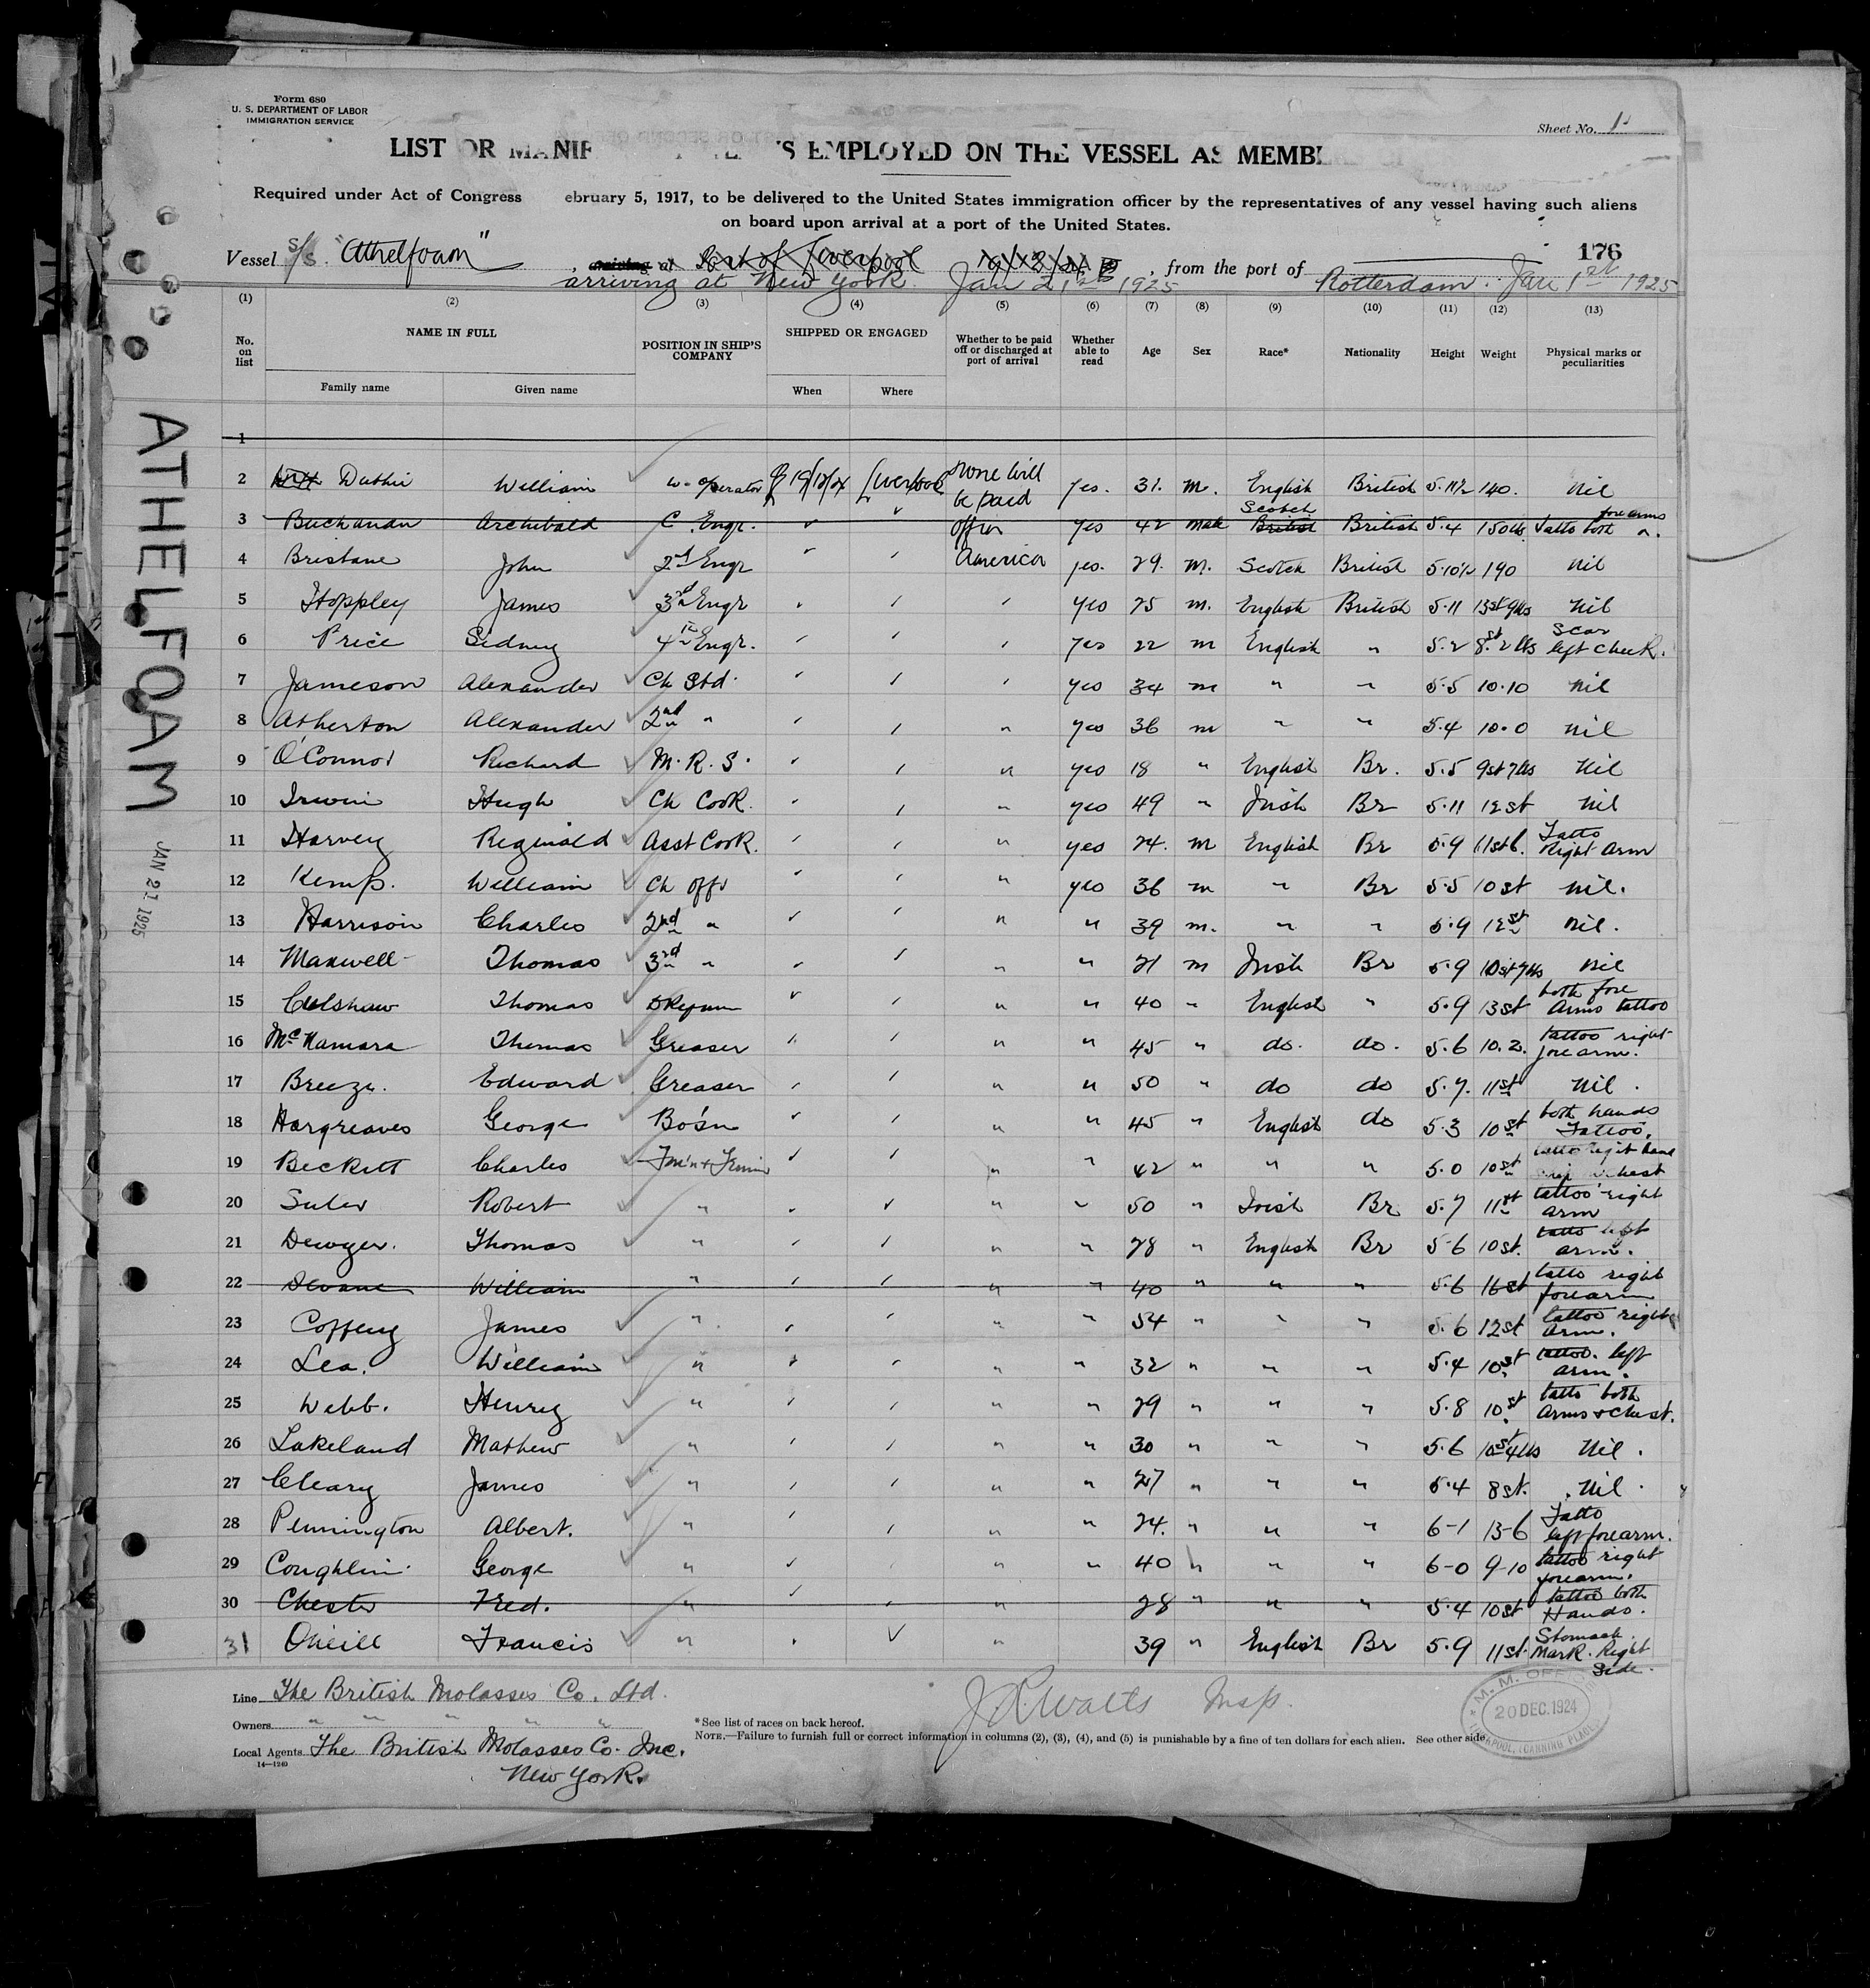 Form 680
U. S. DEPARTMENT OF LABOR
IMMIGRATION SERVICE
Sheet No. 1.
LIST OR MANIF 'S EMPLOYED ON THE VESSEL AS MEMB
Required under Act of Congress ebruary 5, 1917, to be delivered to the United States immigration officer by the representatives of any vessel having such aliens
on board upon arrival at a port of the United States.
176
Vessel S/S. "Athelfoam" , arriving at Port of Liverpool , from the port of
arriving at New York. Jan 21st 1925 Rotterdam. Jan 1st 1925
(1) (2) (3) (4) (5) (6) (7) (8) (9) (10) (11) (12) (13)
No. on list NAME IN FULL Family name Given name POSITION IN SHIP'S COMPANY SHIPPED OR ENGAGED When Where Whether to be paid off or discharged at port of arrival Whether able to read Age Sex Race* Nationality Height Weight Physical marks or peculiarities
1
2 Duthie William W-operator 19/12/24 Liverpool None will be paid yes. 31. m. English British 5.11½ 140. Nil
3 Buchanan Archibald C. Engr. ✓ ✓ off in yes 42 male Scotch British British 5.4 150lbs. Tatto both forearms
4 Brisbane John 2nd Engr " " America yes. 29. M. Scotch British 5.10½ 190 Nil
5 Stoppley James 3rd Engr " " " yes 25 m. English British 5.11 13st 9lbs Nil
6 Price Sidney 4th Engr. " " " yes 22 m English " 5.2 8st. 2 lbs Scar left cheek.
7 Jameson Alexander Ch Std. " " " yes 34 m " " 5.5 10.10 Nil
8 Atherton Alexander 2nd " " " " yes 36 m " " 5.4 10.0 nil
9 O'Connor Richard M.R.S. " " " yes 18 " English Br. 5.5 9st 7lbs Nil
10 Irwin Hugh Ch Cook. " " " yes 49 " Irish Br 5.11 12st Nil
11 Harvey Reginald Asst Cook. " " " yes 24. m English Br 5.9 11st 6. Tatto Right arm
12 Kemp. William Ch offr " " " yes 36 m " Br 5.5 10 st nil.
13 Harrison Charles 2nd " " " " " 39 m. " " 5.9 12st nil.
14 Maxwell Thomas 3rd " " " " " 21 m Irish Br 5.9 10st 7lbs nil
15 Culshaw Thomas DKeyman " " " " 40 " English " 5.9 13st both fore Arms tattoo
16 McNamara Thomas Greaser " " " " 45 " do. do. 5.6 10.2. tattoo right forearm.
17 Breeze. Edward Greaser " " " " 50 " do do 5.7. 11st Nil.
18 Hargreaves George Bo'sn " " " " 45 " English do 5.3 10st both hands Tattoo.
19 Beckett Charles " " " " 42 " " " 5.0 10st tatto right hand chest
20 Suler Robert " " " " " 50 " Irish Br 5.7 11st tattoo right arm
21 Dewyer. Thomas " " " " " 28 " English Br 5.6 10st. tatto left arm.
22 William " " " " " 40 " " " 5.6 16st tatto right forearm
23 Coffeny James " " " " " 54 " " " 5.6 12st tattoo right arm.
24 Lea. William " " " " " 32 " " " 5.4 10st tattoo. left arm.
25 Webb. Henry " " " " " 29 " " " 5.8 10st tatto both Arms & Chest.
26 Lakeland Mathew " " " " " 30 " " " 5.6 10st 4lbs Nil.
27 Cleary James " " " " " 27 " " " 5.4 8st. Nil.
28 Pennington Albert. " " " " " 24. " " " 6-1 13-6 Tatto left forearm.
29 Coughlin. George " " " " " 40 " " " 6-0 9-10 tattoo right forearm.
30 Chester Fred. " " " " 28 " " " 5.4 10st tattoo both Hands.
31 Oneill Francis " " ✓ " 39 " English Br 5.9 11st. Stomach Mark. Right Side.
Line The British Molasses Co. Ltd.
Owners " " " " "
Local Agents The British Molasses Co. Inc.
New York.
14—1240
J R Watts
*See list of races on back hereof.
NOTE.—Failure to furnish full or correct information in columns (2), (3), (4), and (5) is punishable by a fine of ten dollars for each alien. See other side
M. M. OFFICE
20 DEC. 1924
LIVERPOOL, (CANNING PLACE)
ATHELFOAM
JAN 21 1925